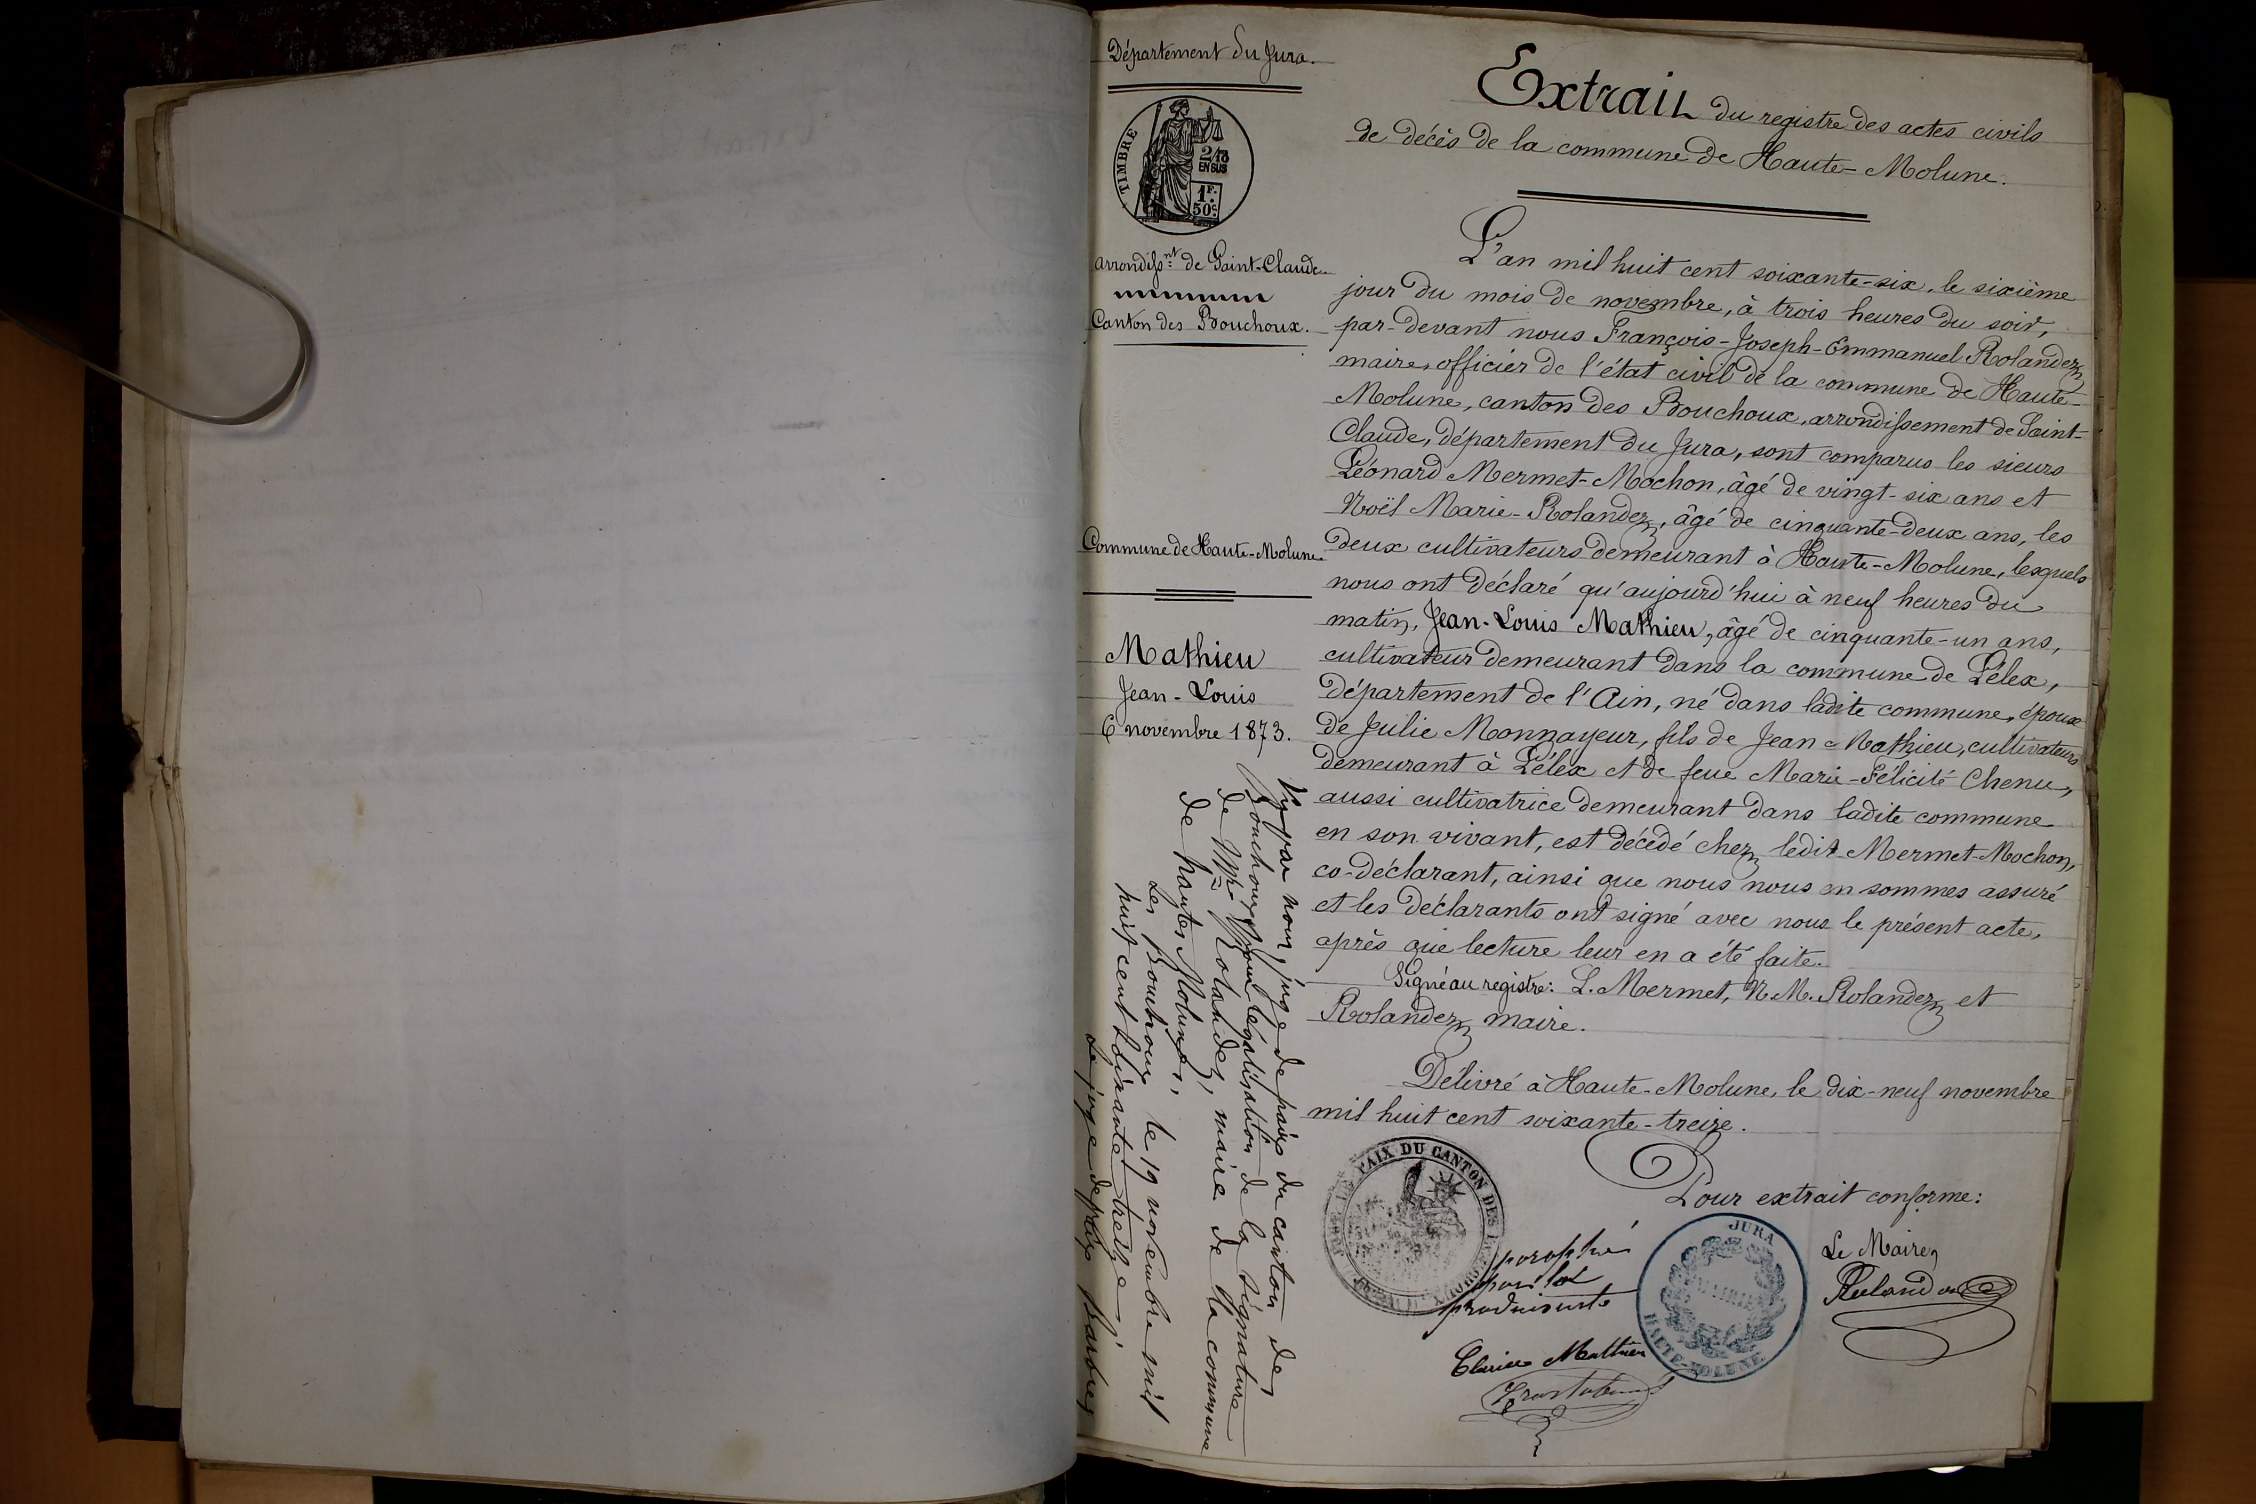 Département du Jura.
TIMBRE
2/10
EN SUS
1F.
50c.
arrondisst. de Saint-Claude.
Canton des Bouchoux.
Commune de Haute-Molune.
Mathieu
Jean-Louis
6 novembre 1873.
Extrait du registre des actes civils
de décès de la commune de Haute-Molune.
L'an mil huit cent soixante-six, le sixième
jour du mois de novembre, à trois heures du soir,
par-devant nous François-Joseph-Emmanuel Rolandez,
maire, officier de l'état civil de la commune de Haute-
Molune, canton des Bouchoux, arrondissement de Saint-
Claude, département du Jura, sont comparus les sieurs
Léonard Mermet-Mochon, âgé de vingt-six ans et
Noël Marie-Rolandez, âgé de cinquante-deux ans, les
deux cultivateurs demeurant à Haute-Molune, lesquels
nous ont déclaré qu'aujourd'hui à neuf heures du
matin, Jean-Louis Mathieu, âgé de cinquante-un ans,
cultivateur demeurant dans la commune de Lélex,
département de l'Ain, né dans ladite commune, époux
de Julie Monnayeur, fils de Jean Mathieu, cultivateur
demeurant à Lélex et de feue Marie-Félicité Chenu,
aussi cultivatrice demeurant dans ladite commune
en son vivant, est décédé chez ledit Mermet-Mochon,
co-déclarant, ainsi que nous nous en sommes assuré
et les déclarants ont signé avec nous le présent acte,
après que lecture leur en a été faite.
Signé au registre: L. Mermet, N. M. Rolandez et
Rolandez maire.
Délivré à Haute-Molune, le dix-neuf novembre
mil huit cent soixante-treize.
Pour extrait conforme:
Le Maire,
Rolandez
JURA
MAIRIE
HAUTE-MOLUNE
PAIX DU CANTON DES
paraphé
par la
produisante
Clarice Mathieu
Vu par nous, juge de paix du canton des
Bouchoux, pour légalisation de la signature
de Mr. Rolandez, maire de la commune
de hautes Molunes,
Les Bouchoux le 19 novembre mil
huit cent soixante treize
Le juge de paix Barbier